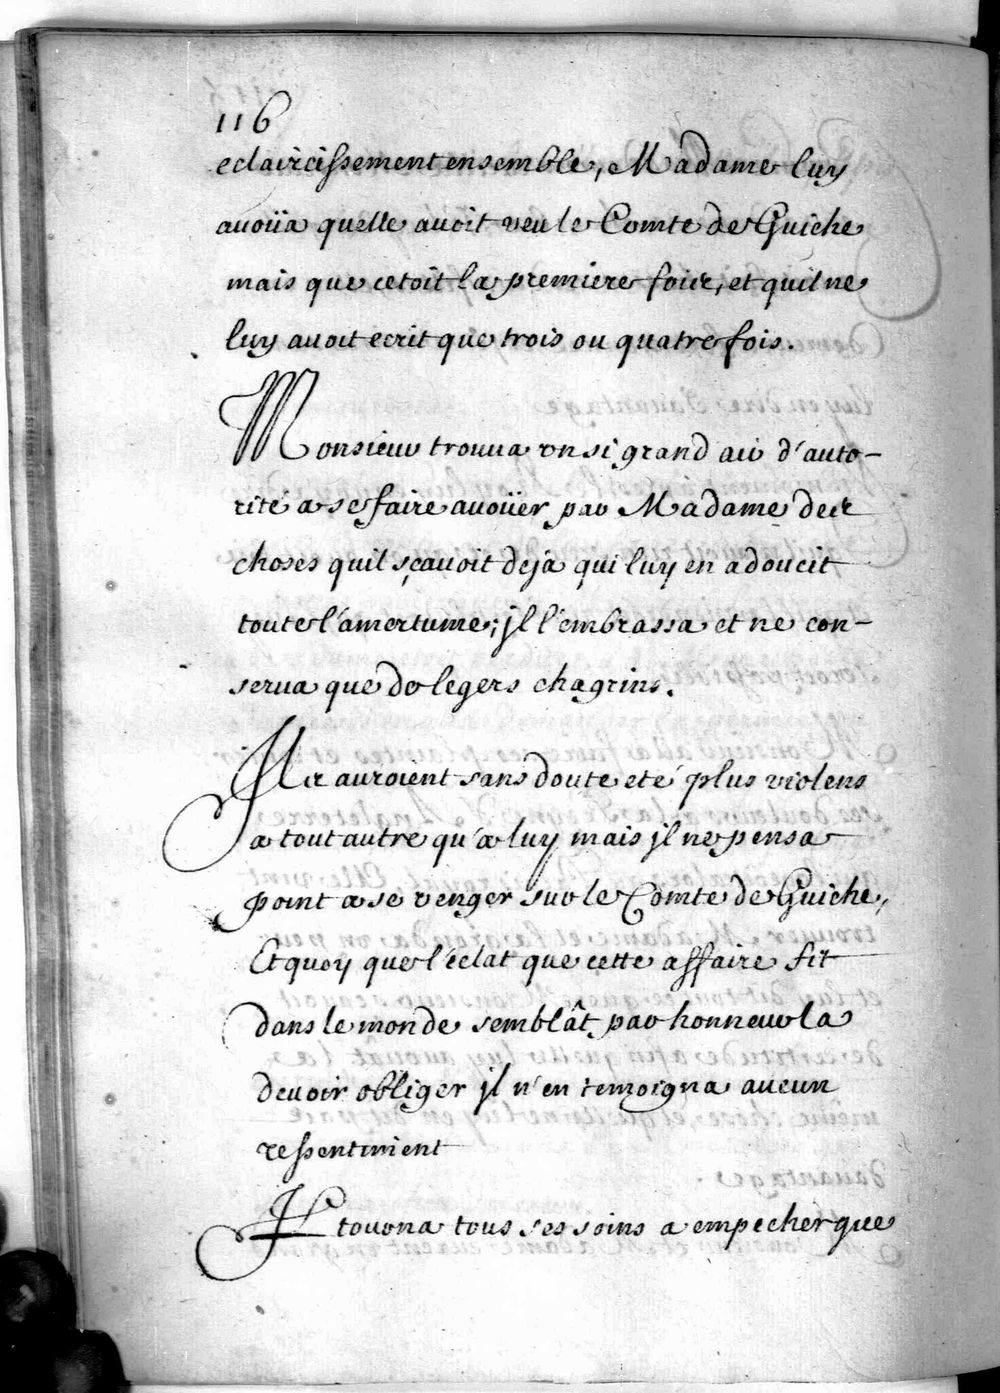 116
eclaircissement ensemble, Madame luy
avoüa quelle avoit veu le Comte de Guiche
mais que cetoit la premiere fois, et quil ne
luy avoit ecrit que trois ou quatre fois.
Monsieur trouva un si grand air d'auto-
rité a se faire avoüer par Madame des
choses quil sçavoit deja qu'il luy en adoucit
toute l'amertume; jl l'embrassa et ne con-
serva que de legers chagrins.
Ils auroient sans doute eté plus violens
a tout autre qu'a luy mais jl ne pensa
point a se venger sur le Comte de Guiche,
Et quoy que l'éclat que cette affaire fit
dans le monde semblât par honneur la
devoir obliger jl n'en temoigna aucun
ressentiment
Il tourna tous ses soins a empecher que